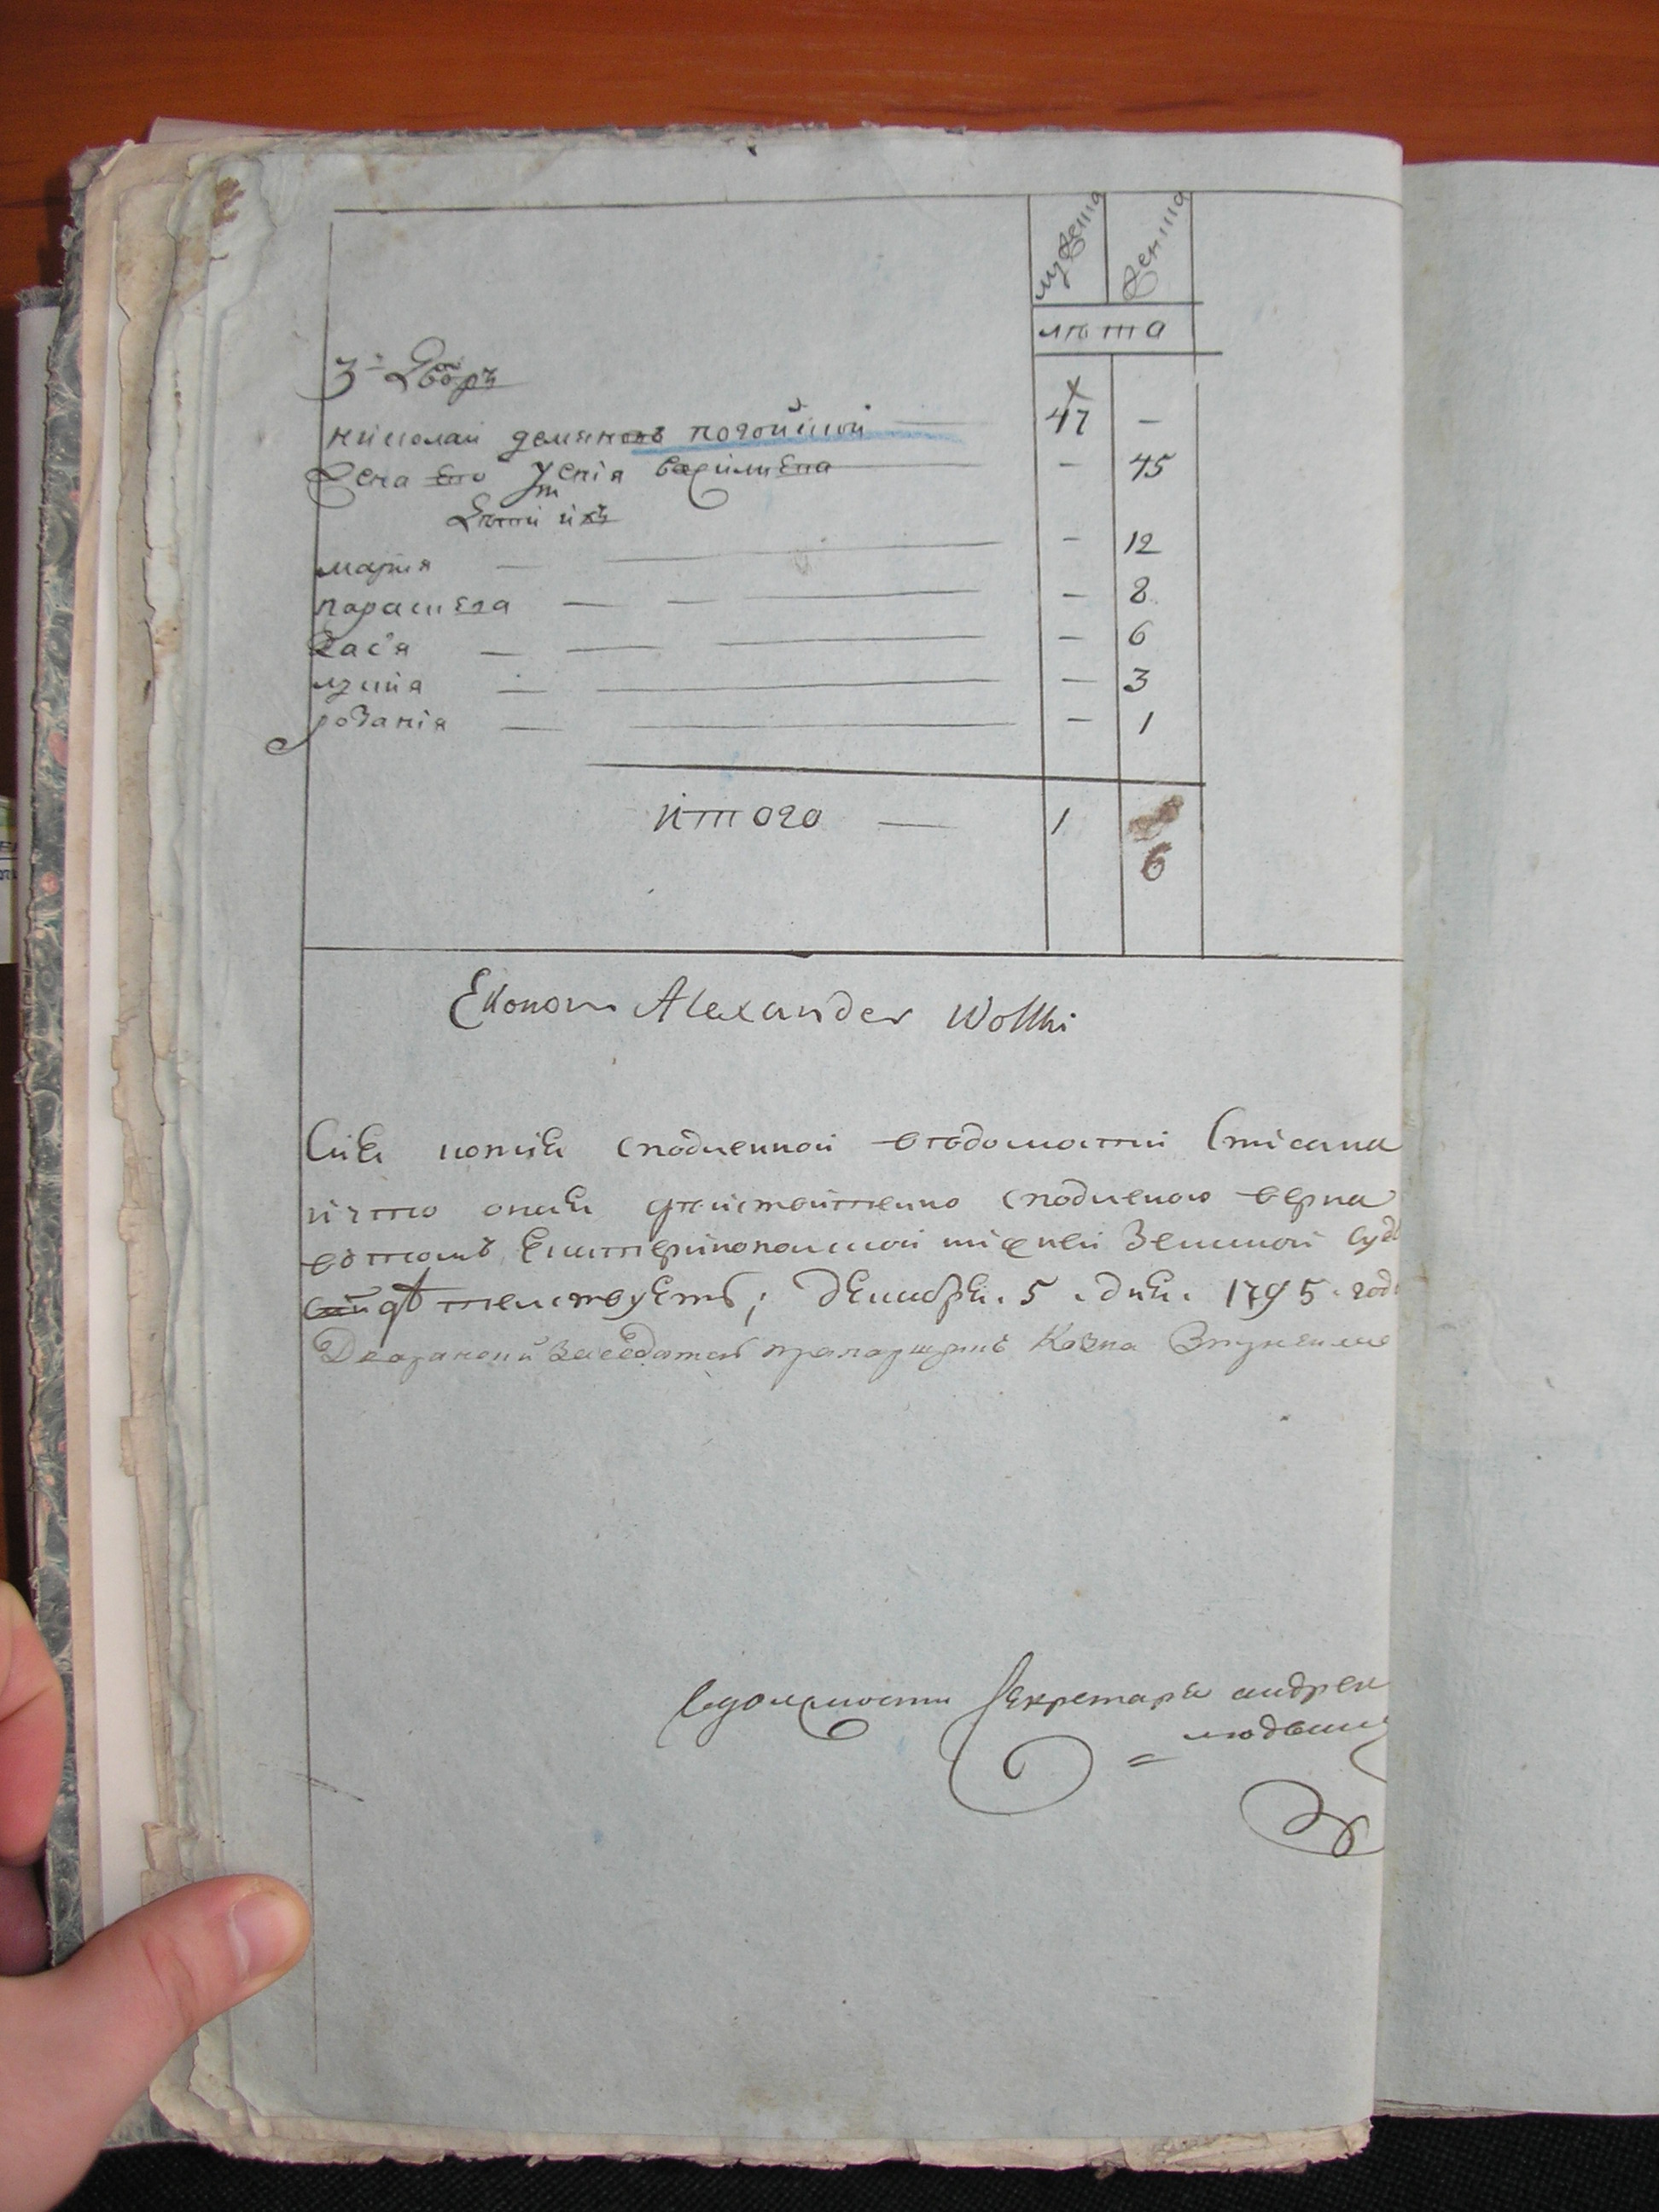 мужеска женска
лѣта
3й Дворъ
николай демяновъ погоцкой — 47 —
Жена его Устенія василиева — 45
Дѣти ихъ
мария — 12
параскева — 8
Тас'я — 6
лукия — 3
розанія — 1
итого — 1 6
Ekonom Alexander Wolski
Сия копия сподленной ведомости списана
и что оная действительно сподленою верна
втомъ Екатеринопольской нижней Земской Суд
свидетелствуетъ; Декабря 5 дня 1795 год
Дворянский заседатель прапорщикъ
вдолжности Секретаря андрей